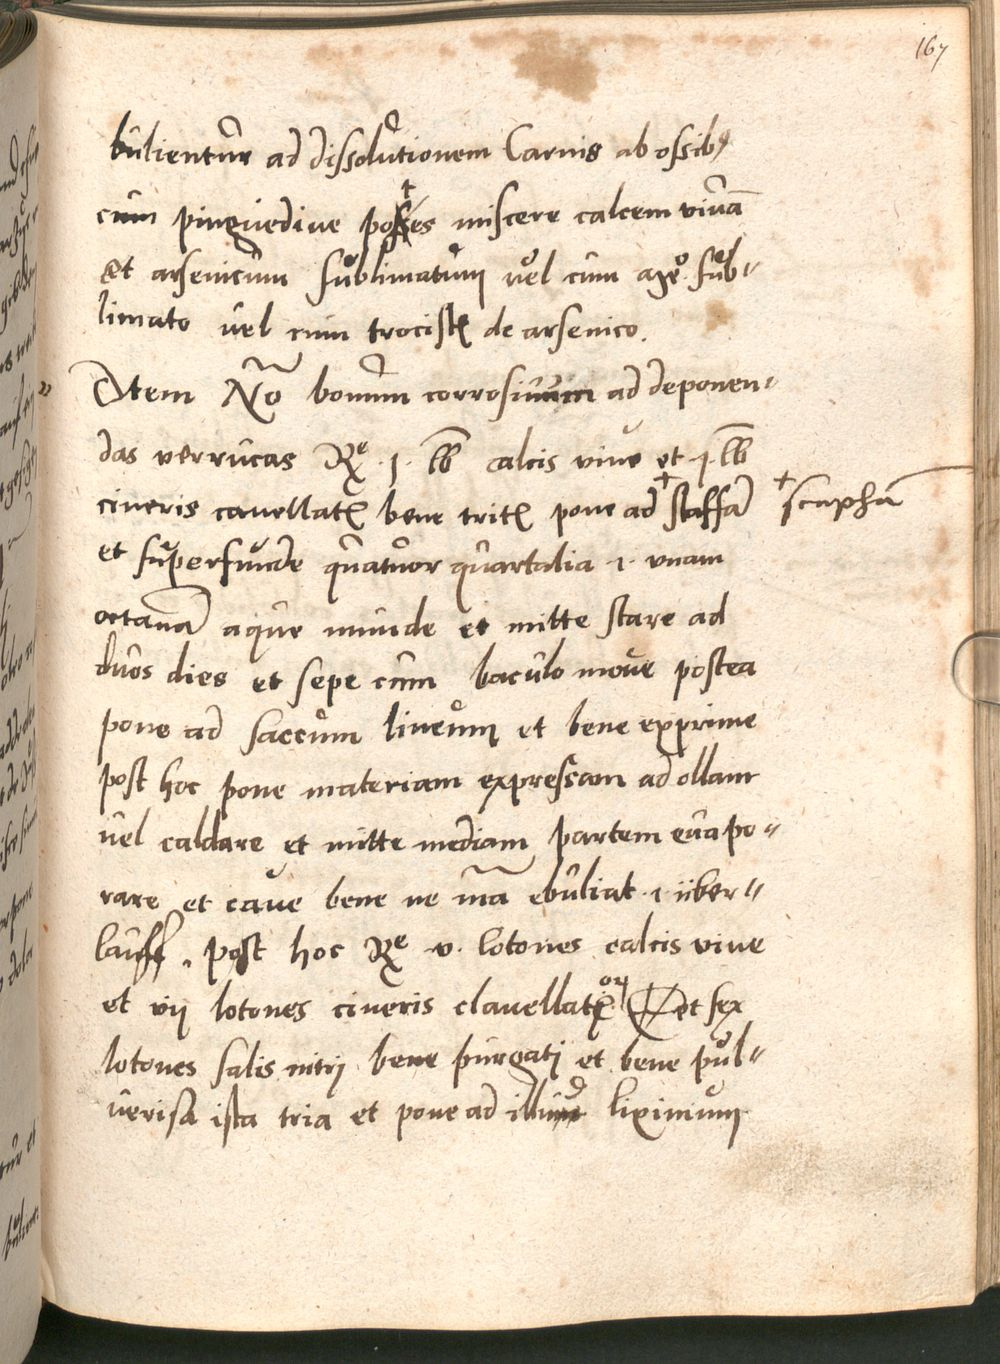 167
bulientur ad dissolutionem Carnis ab ossibꝰ
cum pinguedine posses miscere calcem viuā
Et arsenicum sublimatum vel cum argō sub„
limato vel cum trocistꝭ de arsenico.
Item No bonum corrosiuum ad deponen„
das verrucas Re ·j· lb calcis viue et ·j· lb
cineris cauellatꝭ bene tritꝭ pone ad ☩staffā ☩scaphā
et superfunde quatuor quartalia ·i· vnam
octauā aque munde et mitte stare ad
duos dies et sepe cum baculo moue postea
pone ad saccum lineum et bene exprime
post hoc pone materiam expressam ad ollam
vel caldare et mitte mediam partem euapo„
rare et caue bene ne mā ebuliat ·i· über„
lauff. post hoc Re v· lotones calcis viue
et vij lotones cineris clauellatorꝭ Et sex
lotones salis nitrj bene purgatj et bene pul„
verisa ista tria et pone ad illud lixiuium